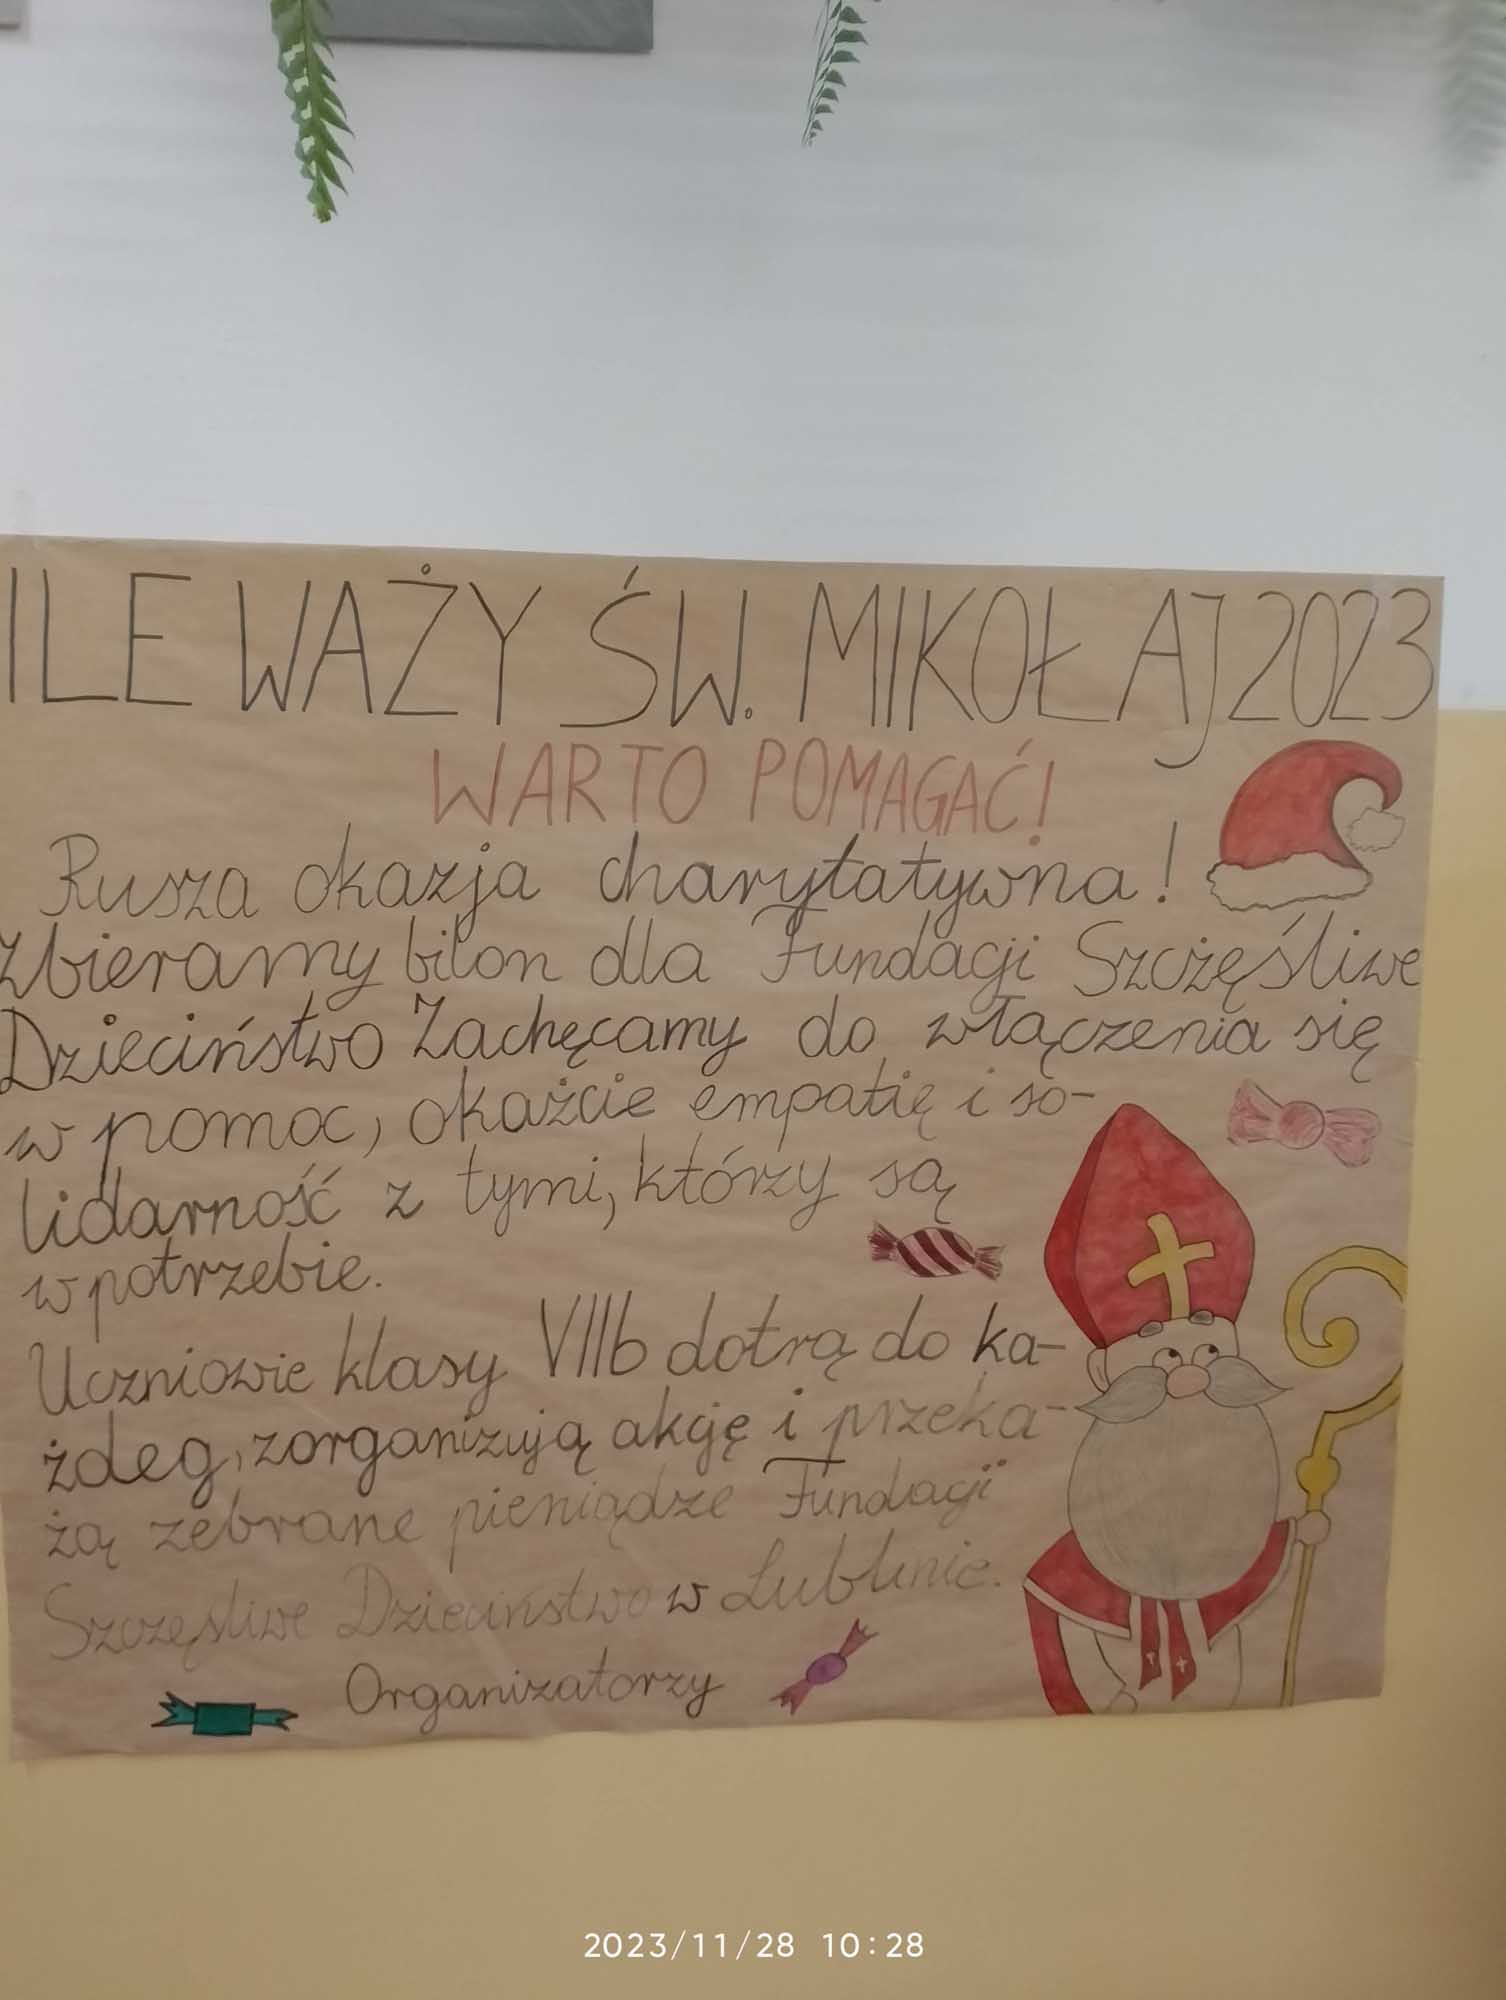 ILE WAŻY ŚW. MIKOŁAJ 2023
WARTO POMAGAĆ!
Rusza okazja charytatywna!
Zbieramy bilon dla Fundacji Szczęśliwe
Dzieciństwo Zachęcamy do włączenia się
w pomoc, okażcie empatię i so-
lidarność z tymi, którzy są
w potrzebie.
Uczniowie klasy VIIb dotrą do ka-
żdeg, zorganizują akcję i przeka-
żą zebrane pieniądze Fundacji
Szczęśliwe Dzieciństwo w Lublinie.
Organizatorzy
2023/11/28 10:28